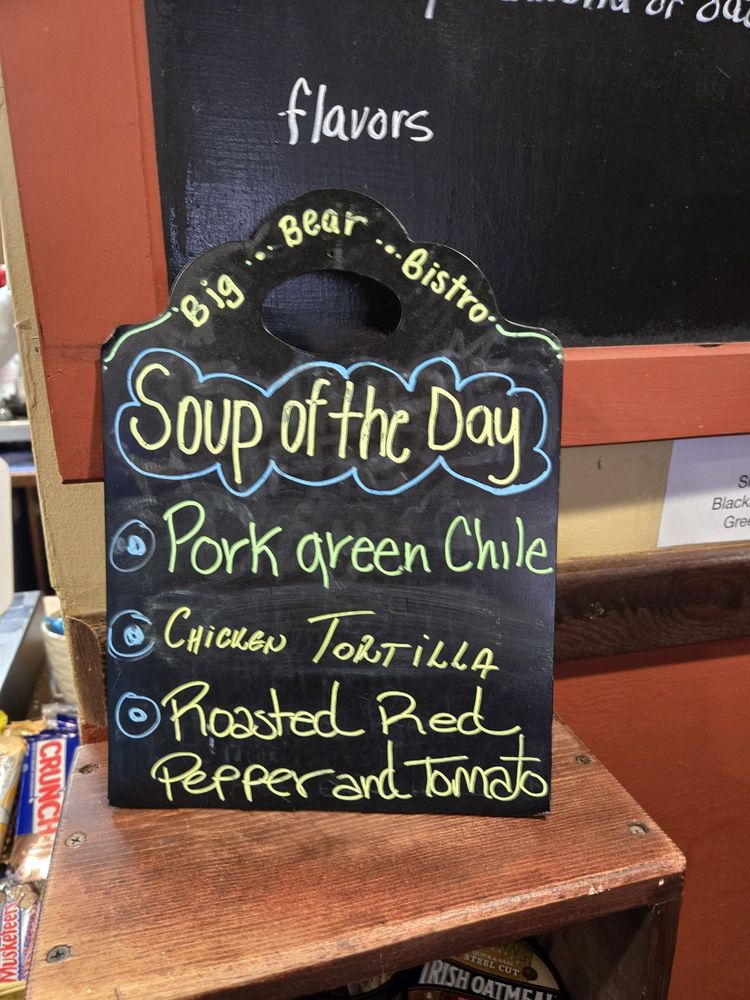 or
flavors
Big... Bear... Bistro
Soup of the Day
Pork green Chile
CHICKEN TORTILLA
Roasted Red
Pepper and Tomato
CRUNCH
Musketeers
STEEL CUT
IRISH OATMEAL